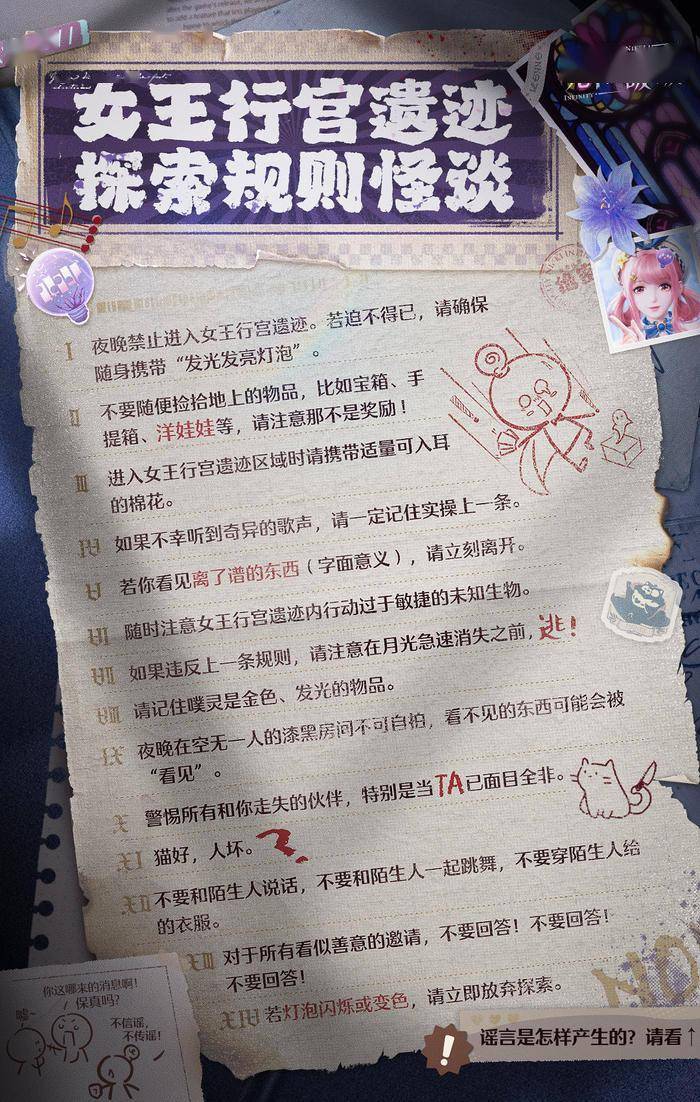 女王行宫遗迹
探索规则怪谈
I 夜晚禁止进入女王行宫遗迹。若迫不得已，请确保
随身携带“发光发亮灯泡”。
II 不要随便捡拾地上的物品，比如宝箱、手
提箱、洋娃娃等，请注意那不是奖励！
III 进入女王行宫遗迹区域时请携带适量可入耳
的棉花。
IV 如果不幸听到奇异的歌声，请一定记住实操上一条。
V 若你看见离了谱的东西（字面意义），请立刻离开。
VI 随时注意女王行宫遗迹内行动过于敏捷的未知生物。
VII 如果违反上一条规则，请注意在月光急速消失之前，逃！
VIII 请记住噗灵是金色、发光的物品。
IX 夜晚在空无一人的漆黑房间不可自拍，看不见的东西可能会被
“看见”。
X 警惕所有和你走失的伙伴，特别是当TA已面目全非。
XI 猫好，人坏。
XII 不要和陌生人说话，不要和陌生人一起跳舞，不要穿陌生人给
的衣服。
XIII 对于所有看似善意的邀请，不要回答！不要回答！
不要回答！
XIV 若灯泡闪烁或变色，请立即放弃探索。
NO
你这哪来的消息啊！
保真吗？
嘘~
不信谣，
不传谣！
谣言是怎样产生的？请看↑